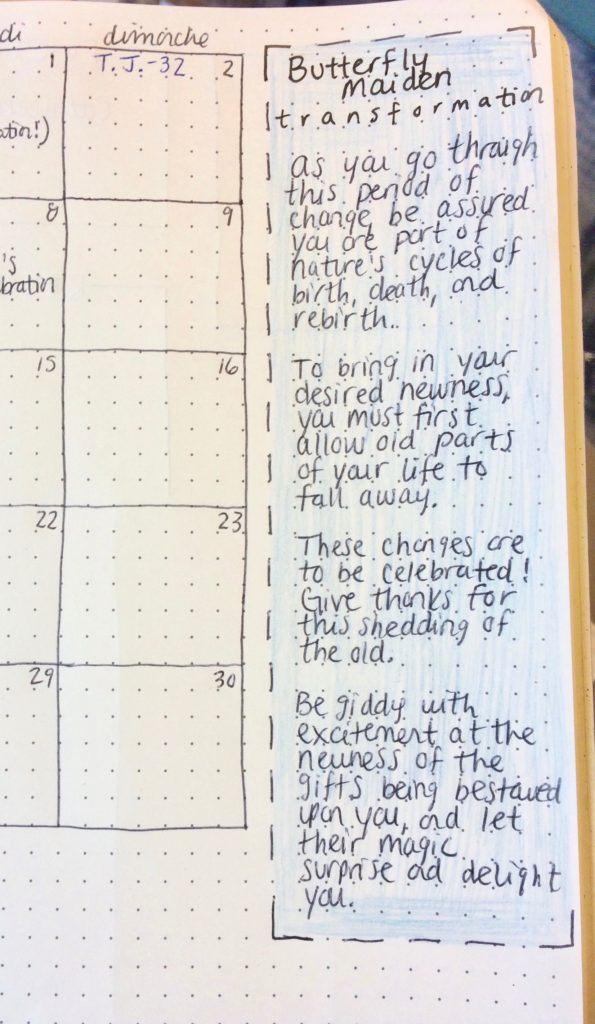 di
dimanche
1
T.J.-32 2
tion!)
8
9
's
bration
15
16
22
23
29
30
Butterfly
maiden
transformation
as you go through
this period of
change be assured
you are part of
nature's cycles of
birth, death, and
rebirth..
To bring in your
desired newness,
you must first
allow old parts
of your life to
fall away.
These changes are
to be celebrated!
Give thanks for
this shedding of
the old.
Be giddy with
excitement at the
newness of the
gifts being bestowed
upon you, and let
their magic
surprise ad delight
you.